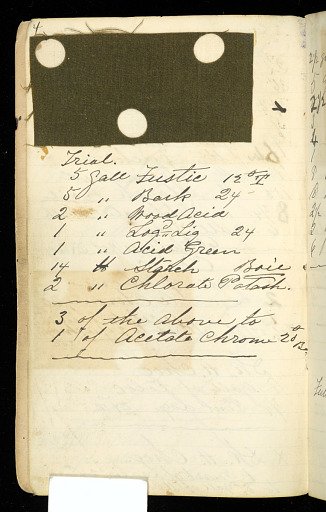 4
Trial.
5 Gall Fustic 12° T
5 " Bark 24
2 " Wood Acid
1 " Log. Liq 24
1 " Acid Green
14 lb Starch Boil
2 " Chlorate Potash.
3 of the above to
1 of Acetate Chrome 20° B